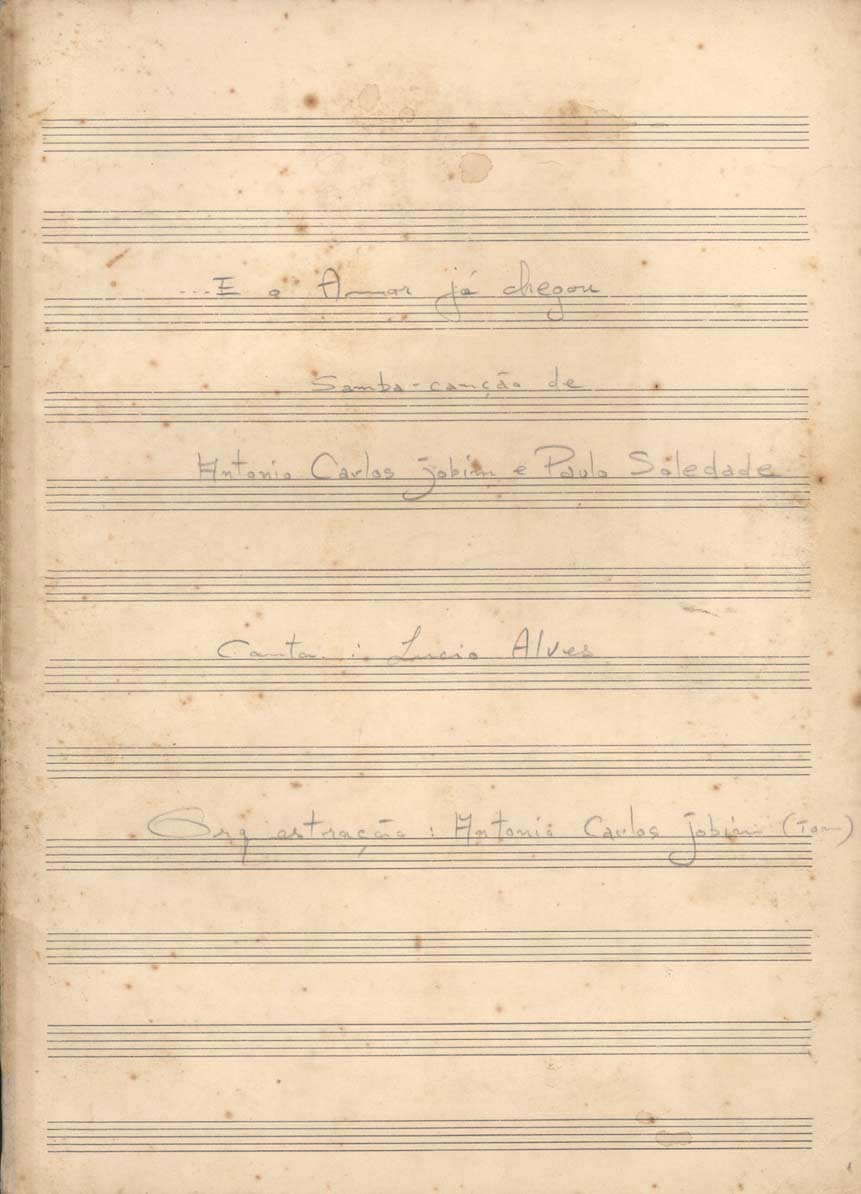 ...E o Amor já chegou
Samba-canção de
Antonio Carlos Jobim e Paulo Soledade
Canta : Lucio Alves
Orquestração : Antonio Carlos Jobim (Tom)